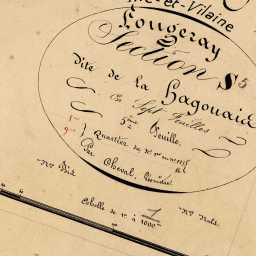 et-Vilaine
Fougeray
Section S5
Dite de la Hagouais
En Sept Feuilles
5ème Feuille.
Quartier de
Par Cheval, Géomètre
Echelle de 1 à 1000